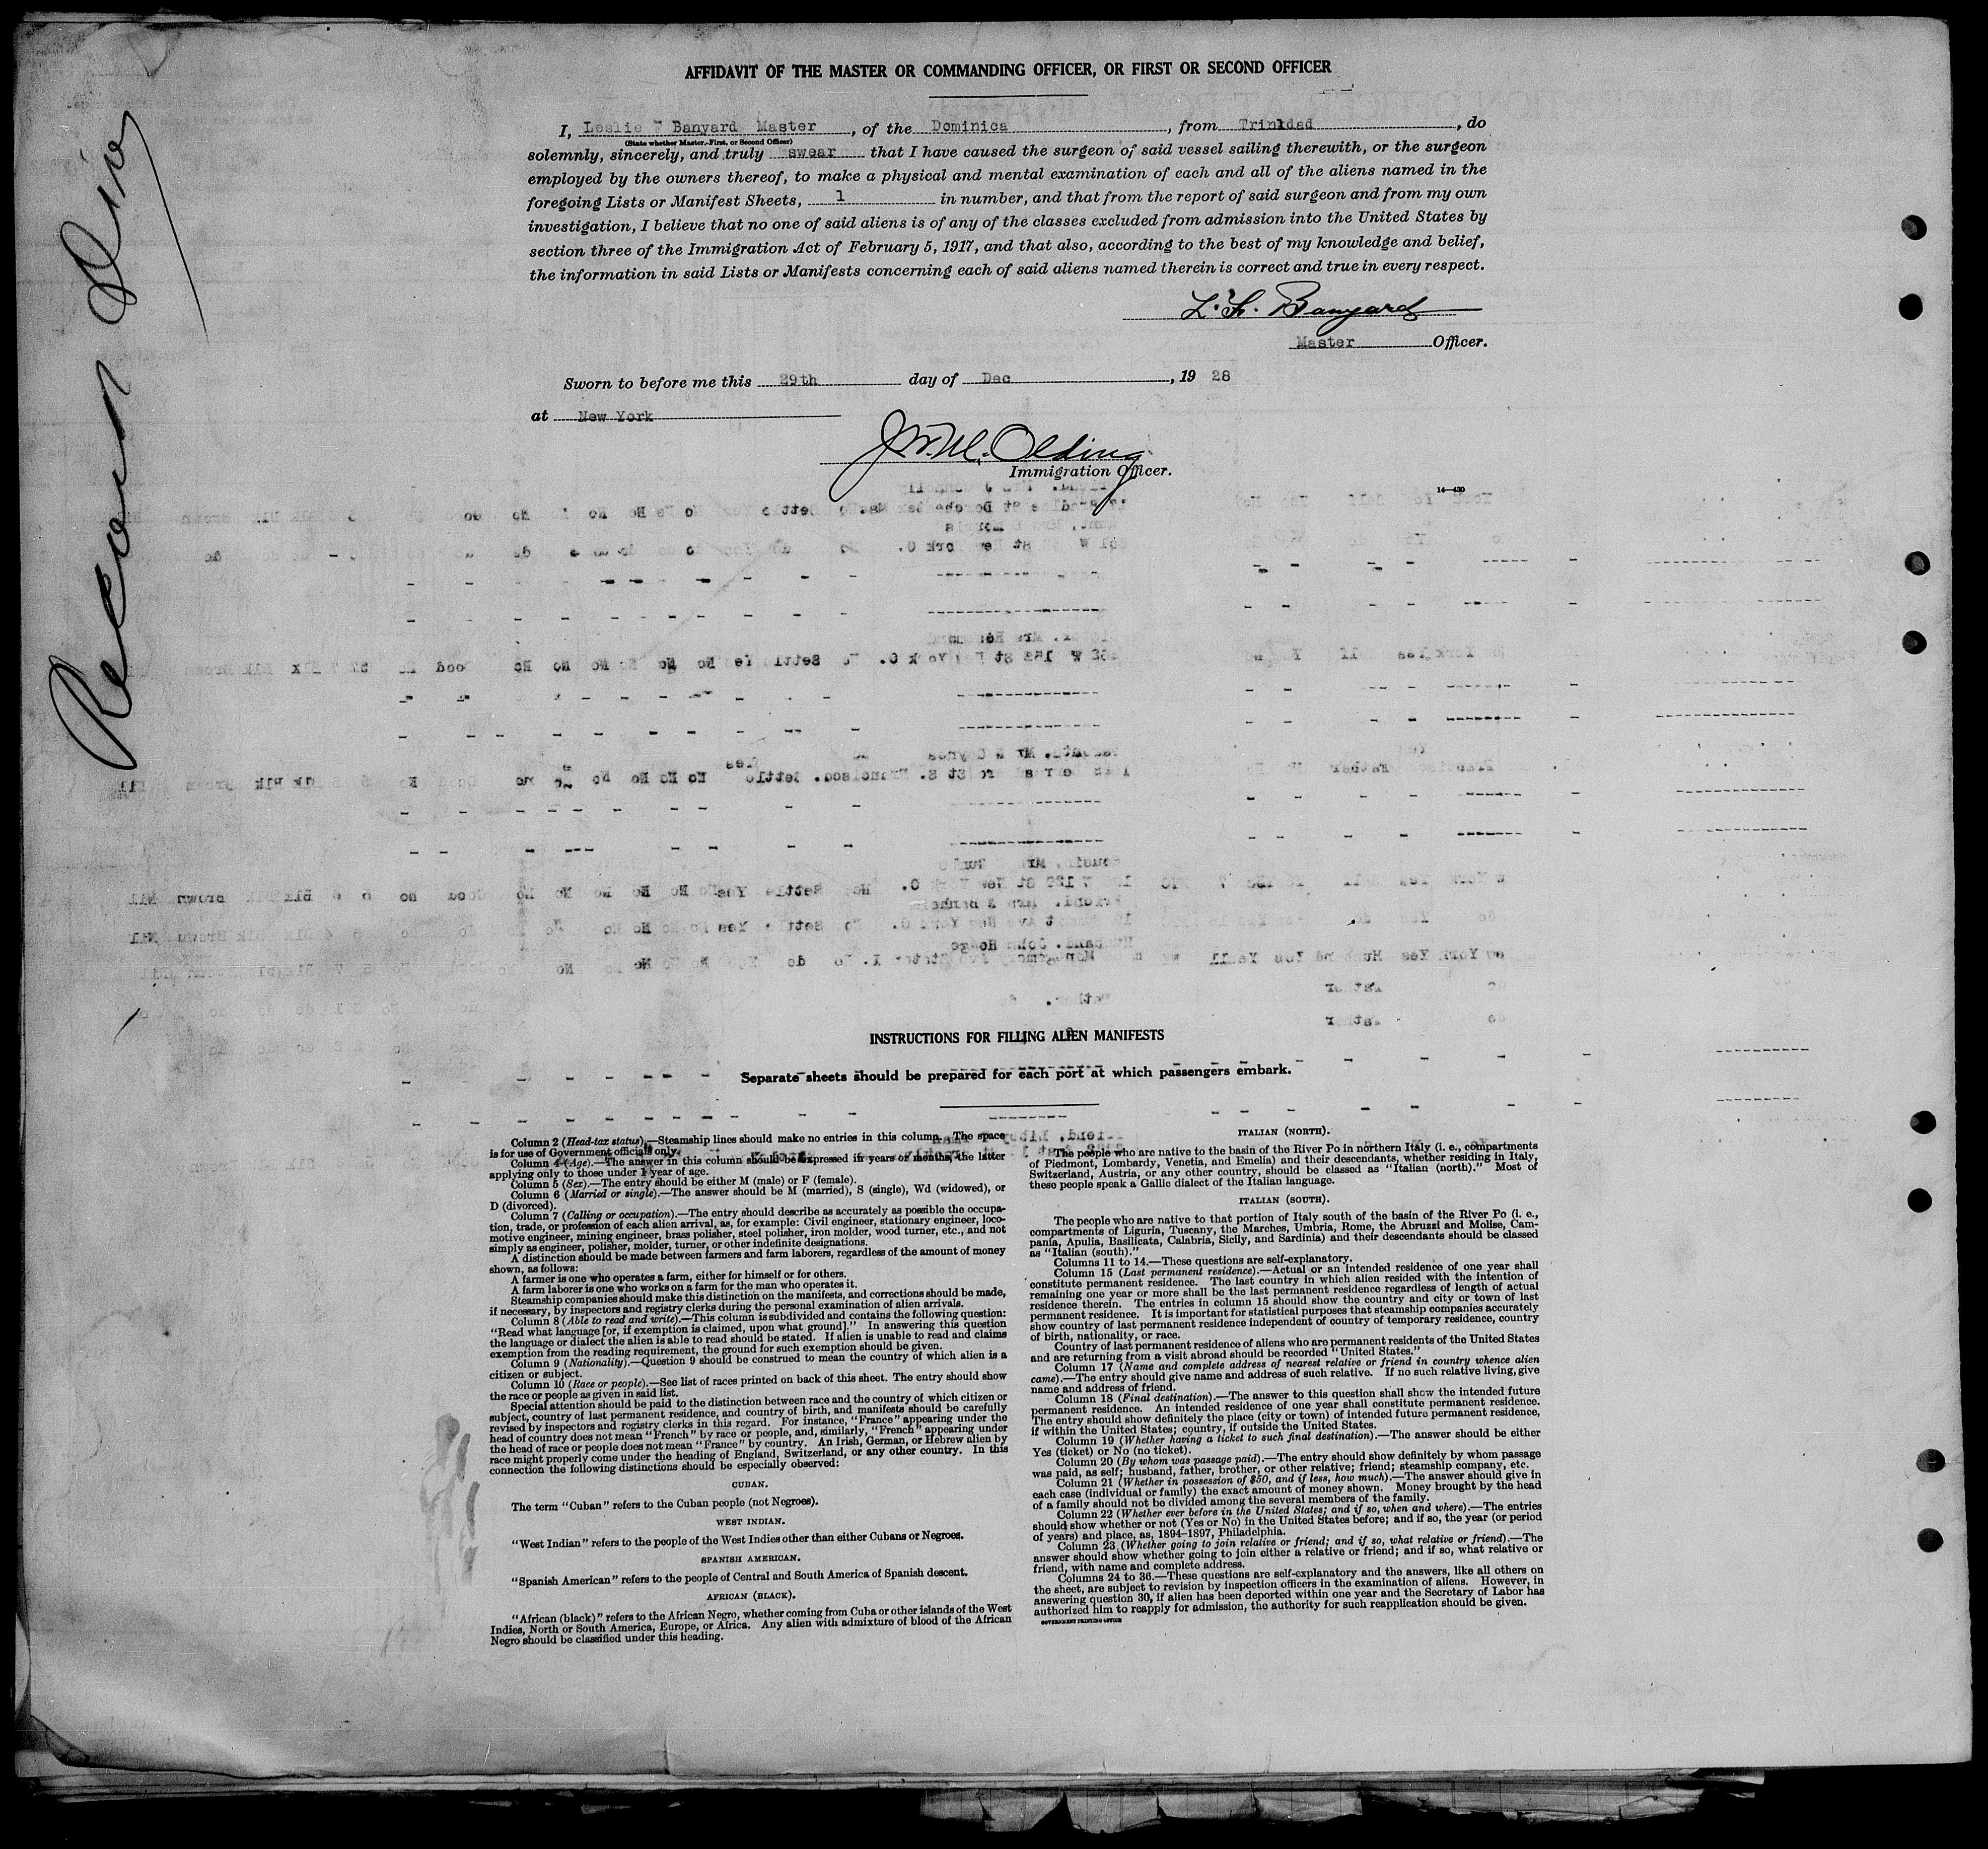 AFFIDAVIT OF THE MASTER OR COMMANDING OFFICER, OR FIRST OR SECOND OFFICER
I, Leslie F Banyard Master, of the Dominica, from Trinidad, do
(State whether Master, First, or Second Officer)
solemnly, sincerely, and truly swear that I have caused the surgeon of said vessel sailing therewith, or the surgeon
employed by the owners thereof, to make a physical and mental examination of each and all of the aliens named in the
foregoing Lists or Manifest Sheets, 1 in number, and that from the report of said surgeon and from my own
investigation, I believe that no one of said aliens is of any of the classes excluded from admission into the United States by
section three of the Immigration Act of February 5, 1917, and that also, according to the best of my knowledge and belief,
the information in said Lists or Manifests concerning each of said aliens named therein is correct and true in every respect.
L. F. Banyard
Master Officer.
Sworn to before me this 29th day of Dec, 19 28
at New York
J. W. M. Olding
Immigration Officer.
14-430
Record
INSTRUCTIONS FOR FILLING ALIEN MANIFESTS
Separate sheets should be prepared for each port at which passengers embark.
Column 2 (Head-tax status).—Steamship lines should make no entries in this column. The space
is for use of Government officials only.
Column 4 (Age).—The answer in this column should be expressed in years or months, the latter
applying only to those under 1 year of age.
Column 5 (Sex).—The entry should be either M (male) or F (female).
Column 6 (Married or single).—The answer should be M (married), S (single), Wd (widowed), or
D (divorced).
Column 7 (Calling or occupation).—The entry should describe as accurately as possible the occupa-
tion, trade, or profession of each alien arrival, as, for example: Civil engineer, stationary engineer, loco-
motive engineer, mining engineer, brass polisher, steel polisher, iron molder, wood turner, etc., and not
simply as engineer, polisher, molder, turner, or other indefinite designations.
A distinction should be made between farmers and farm laborers, regardless of the amount of money
shown, as follows:
A farmer is one who operates a farm, either for himself or for others.
A farm laborer is one who works on a farm for the man who operates it.
Steamship companies should make this distinction on the manifests, and corrections should be made,
if necessary, by inspectors and registry clerks during the personal examination of alien arrivals.
Column 8 (Able to read and write).—This column is subdivided and contains the following question:
"Read what language [or, if exemption is claimed, upon what ground]." In answering this question
the language or dialect the alien is able to read should be stated. If alien is unable to read and claims
exemption from the reading requirement, the ground for such exemption should be given.
Column 9 (Nationality).—Question 9 should be construed to mean the country of which alien is a
citizen or subject.
Column 10 (Race or people).—See list of races printed on back of this sheet. The entry should show
the race or people as given in said list.
Special attention should be paid to the distinction between race and the country of which citizen or
subject, country of last permanent residence, and country of birth, and manifests should be carefully
revised by inspectors and registry clerks in this regard. For instance, "France" appearing under the
head of country does not mean "French" by race or people, and, similarly, "French" appearing under
the head of race or people does not mean "France" by country. An Irish, German, or Hebrew alien by
race might properly come under the heading of England, Switzerland, or any other country. In this
connection the following distinctions should be especially observed:
CUBAN.
The term "Cuban" refers to the Cuban people (not Negroes).
WEST INDIAN.
"West Indian" refers to the people of the West Indies other than either Cubans or Negroes.
SPANISH AMERICAN.
"Spanish American" refers to the people of Central and South America of Spanish descent.
AFRICAN (BLACK).
"African (black)" refers to the African Negro, whether coming from Cuba or other islands of the West
Indies, North or South America, Europe, or Africa. Any alien with admixture of blood of the African
Negro should be classified under this heading.
ITALIAN (NORTH).
The people who are native to the basin of the River Po in northern Italy (i. e., compartments
of Piedmont, Lombardy, Venetia, and Emelia) and their descendants, whether residing in Italy,
Switzerland, Austria, or any other country, should be classed as "Italian (north)." Most of
these people speak a Gallic dialect of the Italian language.
ITALIAN (SOUTH).
The people who are native to that portion of Italy south of the basin of the River Po (i. e.,
compartments of Liguria, Tuscany, the Marches, Umbria, Rome, the Abruzzi and Molise, Cam-
pania, Apulia, Basilicata, Calabria, Sicily, and Sardinia) and their descendants should be classed
as "Italian (south)."
Columns 11 to 14.—These questions are self-explanatory.
Column 15 (Last permanent residence).—Actual or an intended residence of one year shall
constitute permanent residence. The last country in which alien resided with the intention of
remaining one year or more shall be the last permanent residence regardless of length of actual
residence therein. The entries in column 15 should show the country and city or town of last
permanent residence. It is important for statistical purposes that steamship companies accurately
show country of last permanent residence independent of country of temporary residence, country
of birth, nationality, or race.
Country of last permanent residence of aliens who are permanent residents of the United States
and are returning from a visit abroad should be recorded "United States."
Column 17 (Name and complete address of nearest relative or friend in country whence alien
came).—The entry should give name and address of such relative. If no such relative living, give
name and address of friend.
Column 18 (Final destination).—The answer to this question shall show the intended future
permanent residence. An intended residence of one year shall constitute permanent residence.
The entry should show definitely the place (city or town) of intended future permanent residence,
if within the United States; country, if outside the United States.
Column 19 (Whether having a ticket to such final destination).—The answer should be either
Yes (ticket) or No (no ticket).
Column 20 (By whom was passage paid).—The entry should show definitely by whom passage
was paid, as self; husband, father, brother, or other relative; friend; steamship company, etc.
Column 21 (Whether in possession of $50, and if less, how much).—The answer should give in
each case (individual or family) the exact amount of money shown. Money brought by the head
of a family should not be divided among the several members of the family.
Column 22 (Whether ever before in the United States; and if so, when and where).—The entries
should show whether or not (Yes or No) in the United States before; and if so, the year (or period
of years) and place, as, 1894-1897, Philadelphia.
Column 23 (Whether going to join relative or friend; and if so, what relative or friend).—The
answer should show whether going to join either a relative or friend; and if so, what relative or
friend, with name and complete address.
Columns 24 to 36.—These questions are self-explanatory and the answers, like all others on
the sheet, are subject to revision by inspection officers in the examination of aliens. However, in
answering question 30, if alien has been deported within one year and the Secretary of Labor has
authorized him to reapply for admission, the authority for such reapplication should be given.
GOVERNMENT PRINTING OFFICE